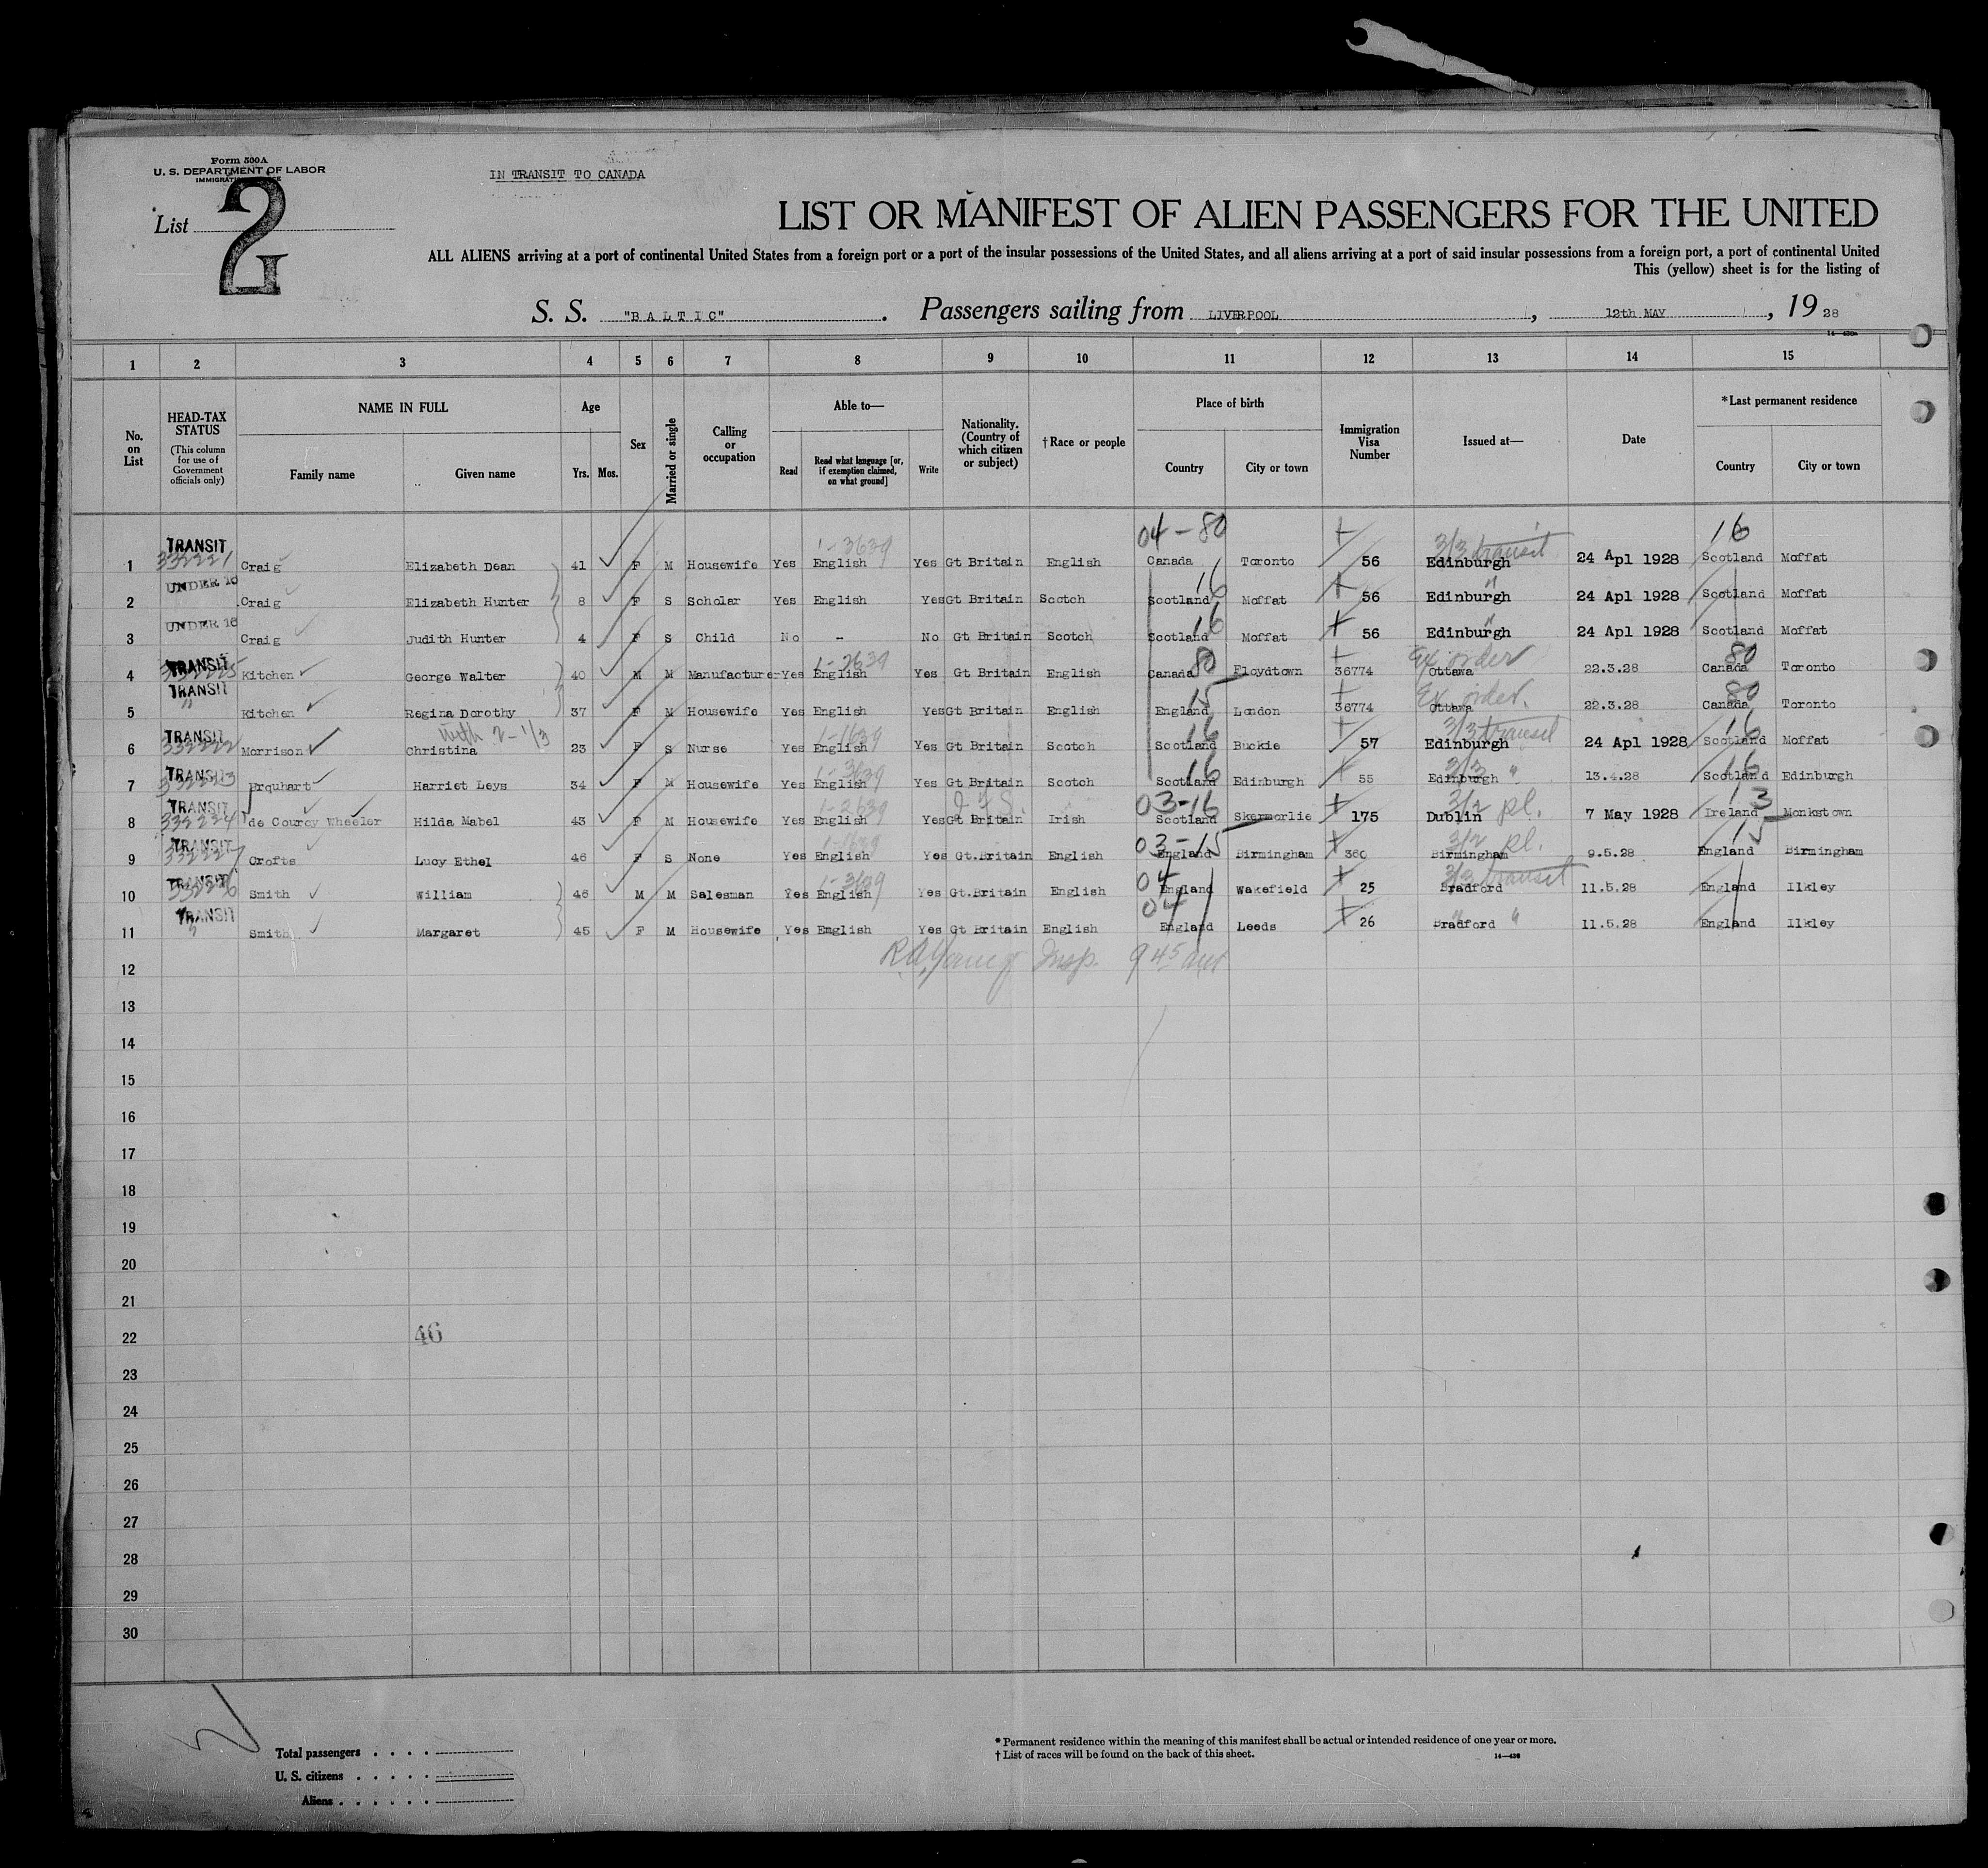 Form 500A
U. S. DEPARTMENT OF LABOR
IN TRANSIT TO CANADA
List 2
LIST OR MANIFEST OF ALIEN PASSENGERS FOR THE UNITED
ALL ALIENS arriving at a port of continental United States from a foreign port or a port of the insular possessions of the United States, and all aliens arriving at a port of said insular possessions from a foreign port, a port of continental United
This (yellow) sheet is for the listing of
S. S. "BALTIC". Passengers sailing from LIVERPOOL, 12th MAY, 19 28
1 2 3 4 5 6 7 8 9 10 11 12 13 14 15
No. on List
HEAD-TAX STATUS (This column for use of Government officials only)
NAME IN FULL Family name Given name
Age Yrs. Mos.
Sex
Married or single
Calling or occupation
Able to— Read Read what language [or, if exemption claimed, on what ground] Write
Nationality. (Country of which citizen or subject)
†Race or people
Place of birth Country City or town
Immigration Visa Number
Issued at—
Date
*Last permanent residence Country City or town
04-80 16
1-3639 3/3 transit
1 TRANSIT 332221 Craig Elizabeth Dean 41 F M Housewife Yes English Yes Gt Britain English Canada Toronto 56 Edinburgh 24 Apl 1928 Scotland Moffat
2 UNDER 16 Craig Elizabeth Hunter 8 F S Scholar Yes English Yes Gt Britain Scotch 16 Scotland Moffat 56 Edinburgh " 24 Apl 1928 Scotland Moffat
3 UNDER 16 Craig Judith Hunter 4 F S Child No - No Gt Britain Scotch 16 Scotland Moffat 56 Edinburgh " 24 Apl 1928 Scotland Moffat
4 TRANSIT 332225 Kitchen George Walter 40 M M Manufacturer Yes 1-2639 English Yes Gt Britain English Canada 80 Floydtown 36774 Ex order Ottawa 22.3.28 80 Canada Toronto
5 TRANSIT " Kitchen Regina Dorothy 37 F M Housewife Yes English Yes Gt Britain English 15 England London 36774 Ex order. Ottawa 22.3.28 80 Canada Toronto
with 2-1/3
6 TRANSIT 332222 Morrison Christina 23 F S Nurse Yes 1-1639 English Yes Gt Britain Scotch 16 Scotland Buckie 57 3/3 transit Edinburgh 24 Apl 1928 16 Scotland Moffat
7 TRANSIT 332223 Urquhart Harriet Leys 34 F M Housewife Yes 1-3639 English Yes Gt Britain Scotch 16 Scotland Edinburgh 55 3/3 Edinburgh " 13.4.28 16 Scotland Edinburgh
8 TRANSIT 332224 de Courcy Wheeler Hilda Mabel 43 F M Housewife Yes 1-2639 English Yes Gt Britain Irish 03-16 Scotland Skermorlie 175 3/2 pl. Dublin 7 May 1928 13 Ireland Monkstown
9 TRANSIT 332227 Crofts Lucy Ethel 46 F S None Yes 1-1639 English Yes Gt.Britain English 03-15 England Birmingham 360 3/2 pl. Birmingham 9.5.28 15 England Birmingham
10 TRANSIT 332226 Smith William 46 M M Salesman Yes 1-3639 English Yes Gt.Britain English 04 England Wakefield 25 3/3 transit Bradford 11.5.28 England Ilkley
11 TRANSIT " Smith Margaret 45 F M Housewife Yes English Yes Gt Britain English 04 England Leeds 26 Bradford " 11.5.28 England Ilkley
12 R A Young Insp. 9 45 am
13
14
15
16
17
18
19
20
21
22 46
23
24
25
26
27
28
29
30
Total passengers . . . .
U. S. citizens . . . . .
Aliens . . . . . .
* Permanent residence within the meaning of this manifest shall be actual or intended residence of one year or more.
† List of races will be found on the back of this sheet.